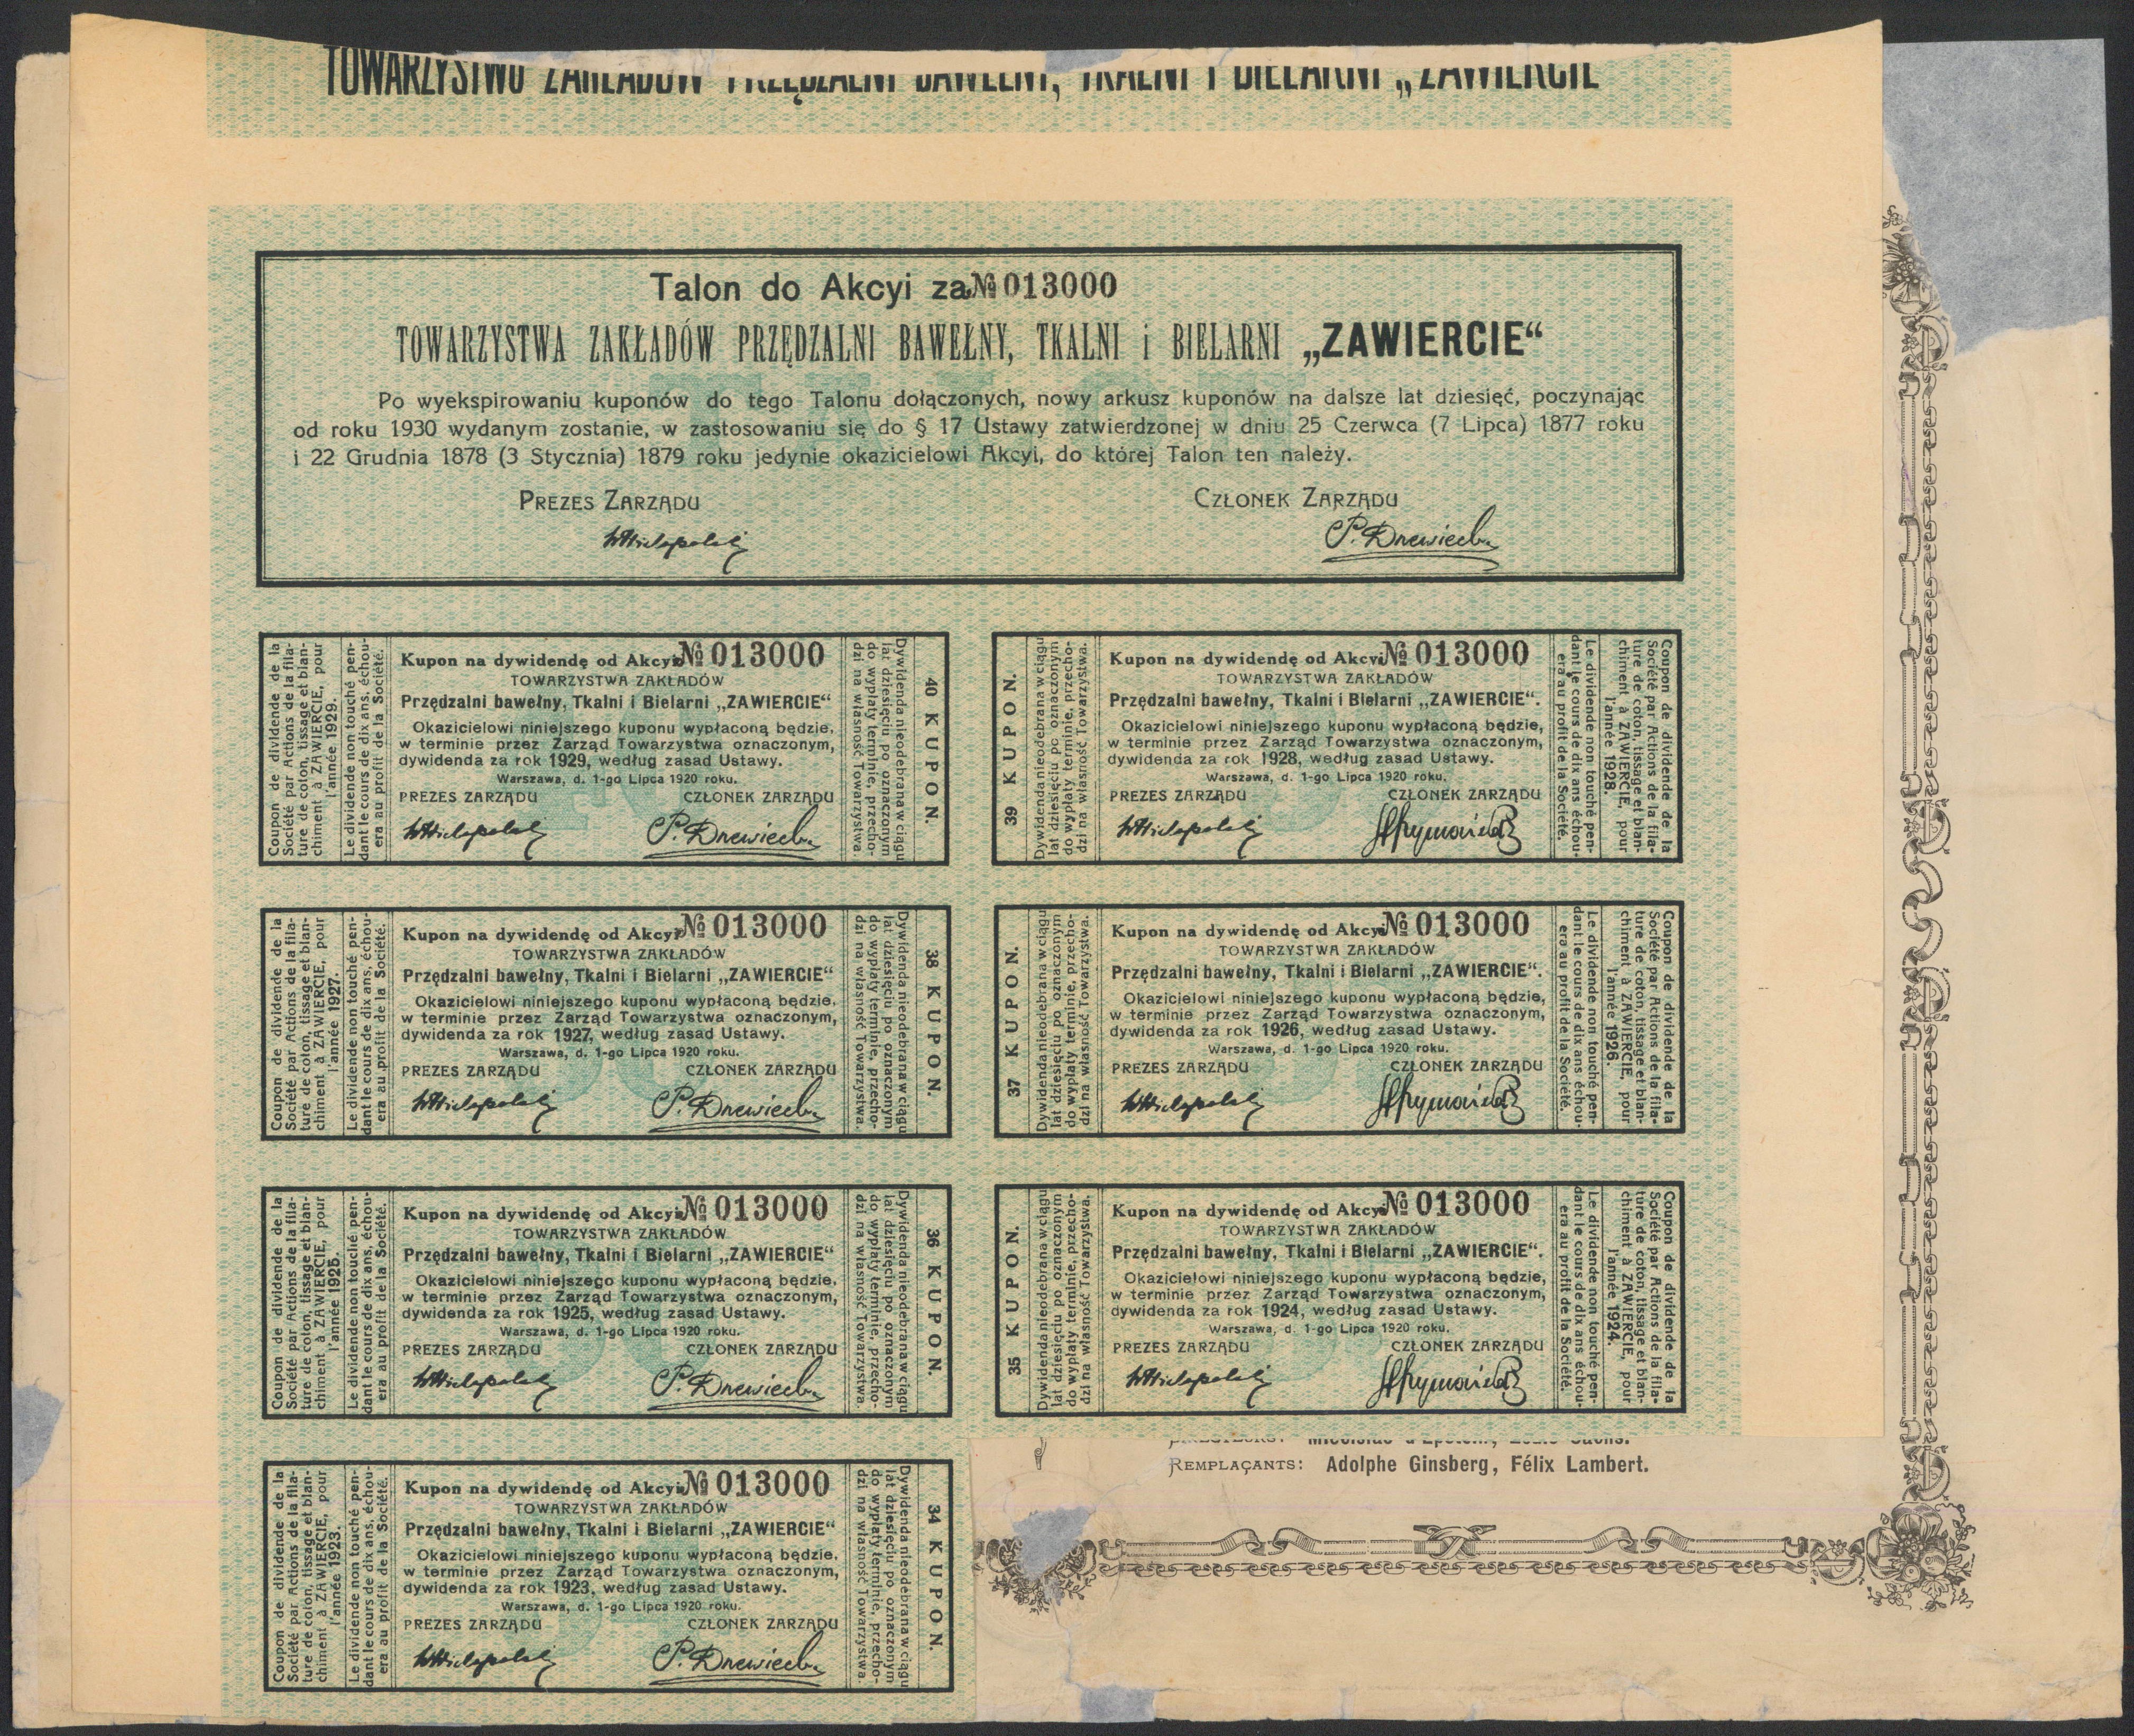 TOWARZYSTWO ZAKŁADÓW PRZĘDZALNI BAWEŁNY, TKALNI I BIELARNI „ZAWIERCIE
Talon do Akcyi za № 013000
TOWARZYSTWA ZAKŁADÓW PRZĘDZALNI BAWEŁNY, TKALNI i BIELARNI „ZAWIERCIE“
Po wyekspirowaniu kuponów do tego Talonu dołączonych, nowy arkusz kuponów na dalsze lat dziesięć, poczynając
od roku 1930 wydanym zostanie, w zastosowaniu się do § 17 Ustawy zatwierdzonej w dniu 25 Czerwca (7 Lipca) 1877 roku
i 22 Grudnia 1878 (3 Stycznia) 1879 roku jedynie okazicielowi Akcyi, do której Talon ten należy.
PREZES ZARZĄDU
CZŁONEK ZARZĄDU
WWielopolski
P. Drzewiecki
Coupon de dividende de la
Société par Actions de la fila-
ture de coton, tissage et blan-
chiment à ZAWIERCIE, pour
l'année 1929.
Le dividende non touché pen-
dant le cours de dix ans, échou-
era au profit de la Société.
Kupon na dywidendę od Akcyi № 013000
TOWARZYSTWA ZAKŁADÓW
Przędzalni bawełny, Tkalni i Bielarni „ZAWIERCIE“
Okazicielowi niniejszego kuponu wypłaconą będzie,
w terminie przez Zarząd Towarzystwa oznaczonym,
dywidenda za rok 1929, według zasad Ustawy.
Warszawa, d. 1-go Lipca 1920 roku.
PREZES ZARZĄDU
CZŁONEK ZARZĄDU
WWielopolski
P. Drzewiecki
Dywidenda nieodebrana w ciągu
lat dziesięciu po oznaczonym
do wypłaty terminie, przecho-
dzi na własność Towarzystwa.
40 KUPON.
39 KUPON.
Dywidenda nieodebrana w ciągu
lat dziesięciu po oznaczonym
do wypłaty terminie, przecho-
dzi na własność Towarzystwa.
Kupon na dywidendę od Akcyi № 013000
TOWARZYSTWA ZAKŁADÓW
Przędzalni bawełny, Tkalni i Bielarni „ZAWIERCIE“.
Okazicielowi niniejszego kuponu wypłaconą będzie,
w terminie przez Zarząd Towarzystwa oznaczonym,
dywidenda za rok 1928, według zasad Ustawy.
Warszawa, d. 1-go Lipca 1920 roku.
PREZES ZARZĄDU
CZŁONEK ZARZĄDU
WWielopolski
Le dividende non touché pen-
dant le cours de dix ans échou-
era au profit de la Société.
Coupon de dividende de la
Société par Actions de la fila-
ture de coton, tissage et blan-
chiment à ZAWIERCIE, pour
l'année 1928.
Coupon de dividende de la
Société par Actions de la fila-
ture de coton, tissage et blan-
chiment à ZAWIERCIE, pour
l'année 1927.
Le dividende non touché pen-
dant le cours de dix ans, échou-
era au profit de la Société.
Kupon na dywidendę od Akcyi № 013000
TOWARZYSTWA ZAKŁADÓW
Przędzalni bawełny, Tkalni i Bielarni „ZAWIERCIE“
Okazicielowi niniejszego kuponu wypłaconą będzie,
w terminie przez Zarząd Towarzystwa oznaczonym,
dywidenda za rok 1927, według zasad Ustawy.
Warszawa, d. 1-go Lipca 1920 roku.
PREZES ZARZĄDU
CZŁONEK ZARZĄDU
WWielopolski
P. Drzewiecki
Dywidenda nieodebrana w ciągu
lat dziesięciu po oznaczonym
do wypłaty terminie, przecho-
dzi na własność Towarzystwa.
38 KUPON.
37 KUPON.
Dywidenda nieodebrana w ciągu
lat dziesięciu po oznaczonym
do wypłaty terminie, przecho-
dzi na własność Towarzystwa.
Kupon na dywidendę od Akcyi № 013000
TOWARZYSTWA ZAKŁADÓW
Przędzalni bawełny, Tkalni i Bielarni „ZAWIERCIE“.
Okazicielowi niniejszego kuponu wypłaconą będzie,
w terminie przez Zarząd Towarzystwa oznaczonym,
dywidenda za rok 1926, według zasad Ustawy.
Warszawa, d. 1-go Lipca 1920 roku.
PREZES ZARZĄDU
CZŁONEK ZARZĄDU
WWielopolski
Le dividende non touché pen-
dant le cours de dix ans échou-
era au profit de la Société.
Coupon de dividende de la
Société par Actions de la fila-
ture de coton, tissage et blan-
chiment à ZAWIERCIE, pour
l'année 1926.
Coupon de dividende de la
Société par Actions de la fila-
ture de coton, tissage et blan-
chiment à ZAWIERCIE, pour
l'année 1925.
Le dividende non touché pen-
dant le cours de dix ans, échou-
era au profit de la Société.
Kupon na dywidendę od Akcyi № 013000
TOWARZYSTWA ZAKŁADÓW
Przędzalni bawełny, Tkalni i Bielarni „ZAWIERCIE“
Okazicielowi niniejszego kuponu wypłaconą będzie,
w terminie przez Zarząd Towarzystwa oznaczonym,
dywidenda za rok 1925, według zasad Ustawy.
Warszawa, d. 1-go Lipca 1920 roku.
PREZES ZARZĄDU
CZŁONEK ZARZĄDU
WWielopolski
P. Drzewiecki
Dywidenda nieodebrana w ciągu
lat dziesięciu po oznaczonym
do wypłaty terminie, przecho-
dzi na własność Towarzystwa.
36 KUPON.
35 KUPON.
Dywidenda nieodebrana w ciągu
lat dziesięciu po oznaczonym
do wypłaty terminie, przecho-
dzi na własność Towarzystwa.
Kupon na dywidendę od Akcyi № 013000
TOWARZYSTWA ZAKŁADÓW
Przędzalni bawełny, Tkalni i Bielarni „ZAWIERCIE“.
Okazicielowi niniejszego kuponu wypłaconą będzie,
w terminie przez Zarząd Towarzystwa oznaczonym,
dywidenda za rok 1924, według zasad Ustawy.
Warszawa, d. 1-go Lipca 1920 roku.
PREZES ZARZĄDU
CZŁONEK ZARZĄDU
WWielopolski
Le dividende non touché pen-
dant le cours de dix ans échou-
era au profit de la Société.
Coupon de dividende de la
Société par Actions de la fila-
ture de coton, tissage et blan-
chiment à ZAWIERCIE, pour
l'année 1924.
Coupon de dividende de la
Société par Actions de la fila-
ture de coton, tissage et blan-
chiment à ZAWIERCIE, pour
l'année 1923.
Le dividende non touché pen-
dant le cours de dix ans, échou-
era au profit de la Société.
Kupon na dywidendę od Akcyi № 013000
TOWARZYSTWA ZAKŁADÓW
Przędzalni bawełny, Tkalni i Bielarni „ZAWIERCIE“
Okazicielowi niniejszego kuponu wypłaconą będzie,
w terminie przez Zarząd Towarzystwa oznaczonym,
dywidenda za rok 1923, według zasad Ustawy.
Warszawa, d. 1-go Lipca 1920 roku.
PREZES ZARZĄDU
CZŁONEK ZARZĄDU
WWielopolski
P. Drzewiecki
Dywidenda nieodebrana w ciągu
lat dziesięciu po oznaczonym
do wypłaty terminie, przecho-
dzi na własność Towarzystwa.
34 KUPON.
REMPLAÇANTS: Adolphe Ginsberg, Félix Lambert.